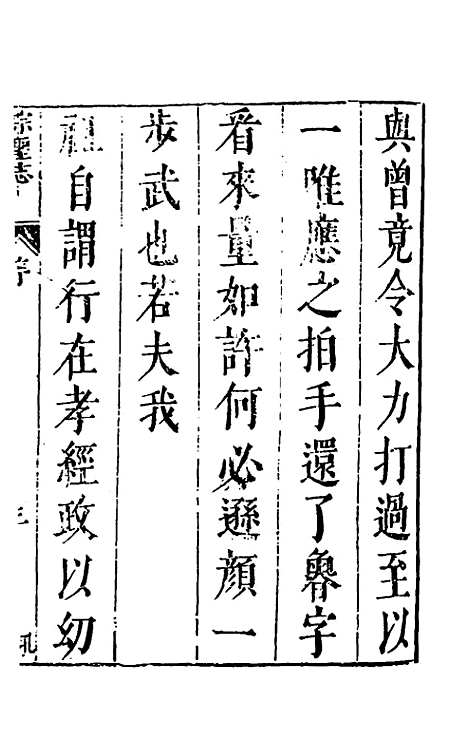 與曾竟令大力打過至以
一唯應之拍手還了魯字
看來量如許何必遜顏一
步武也若夫我
祖自謂行在孝經政以幼
宗聖志
序
三